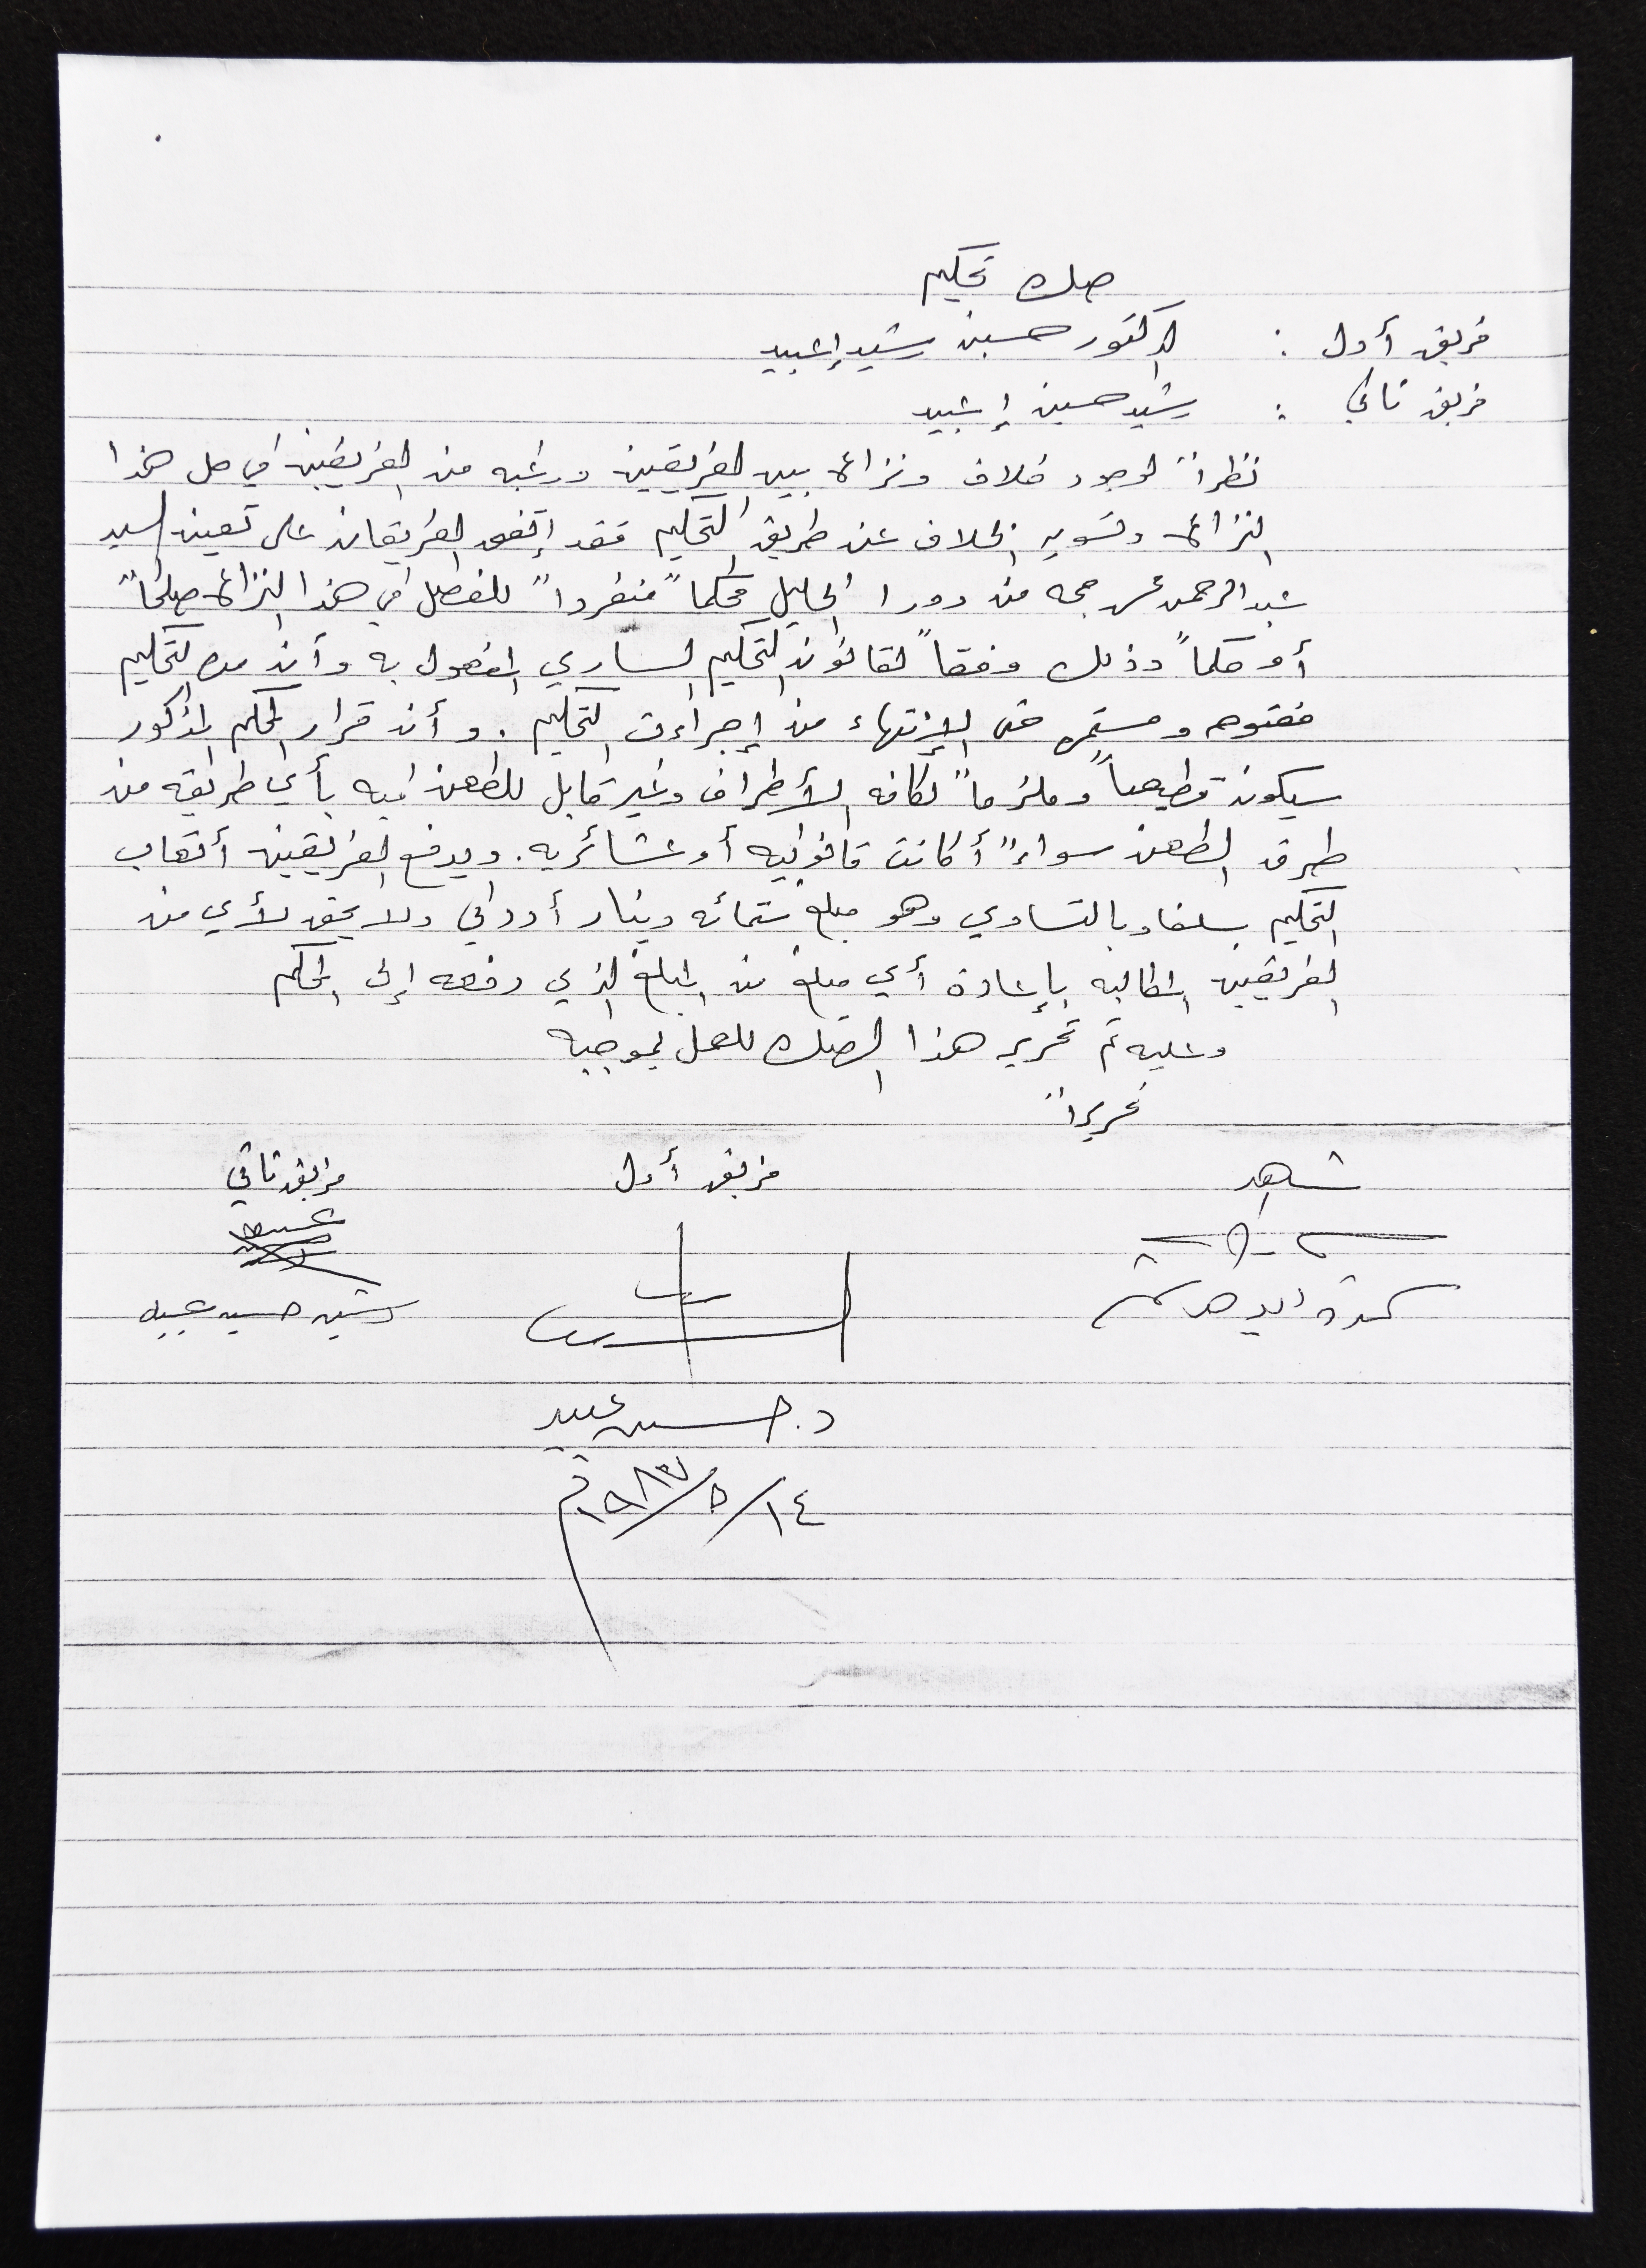 صك تحكيم
فريق أول : الدكتور حسين رشيد إعبيد
فريق ثاني : رشيد حسين إعبيد
نظراً لوجود خلاف ونزاع بين الفريقين ورغبه من الفريقين في حل هذا
النزاع وتسويه الخلاف عن طريق التحكيم فقد إتفق الفريقان على تعيين السيد
عبد الرحمن من دورا الخليل محكماً منفرداً للفصل في هذا النزاع صلحاً
أو حكماً وذلك وفقاً لقانون التحكيم الساري المفعول به وأن مده التحكيم
مفتوحه ومستمره حتى الإنتهاء من إجراءت التحكيم . و أن قرار المحكم المذكور
سيكون قطيعاً وملزماً لكافه الأطراف وغير قابل للطعن فيه بأي طريقه من
طرق الطعن سواءً أكانت قانونيه أو عشائريه . ويدفع الفريقين أتعاب
التحكيم سلفا وبالتساوي وهو مبلغ ستمائه دينار أردني ولا يحق لأي من
الفريقين المطالبه بإعادة أي مبلغ من المبلغ الذي دفعه إلى المحكم
وعليه تم تحرير هذا الصك للعمل بموجبه
تحريراً
شاهد فريق أول فريق ثاني
رشيد حسين عبيد
د. حسين عبيد
١٤/٥/١٩٨٣م